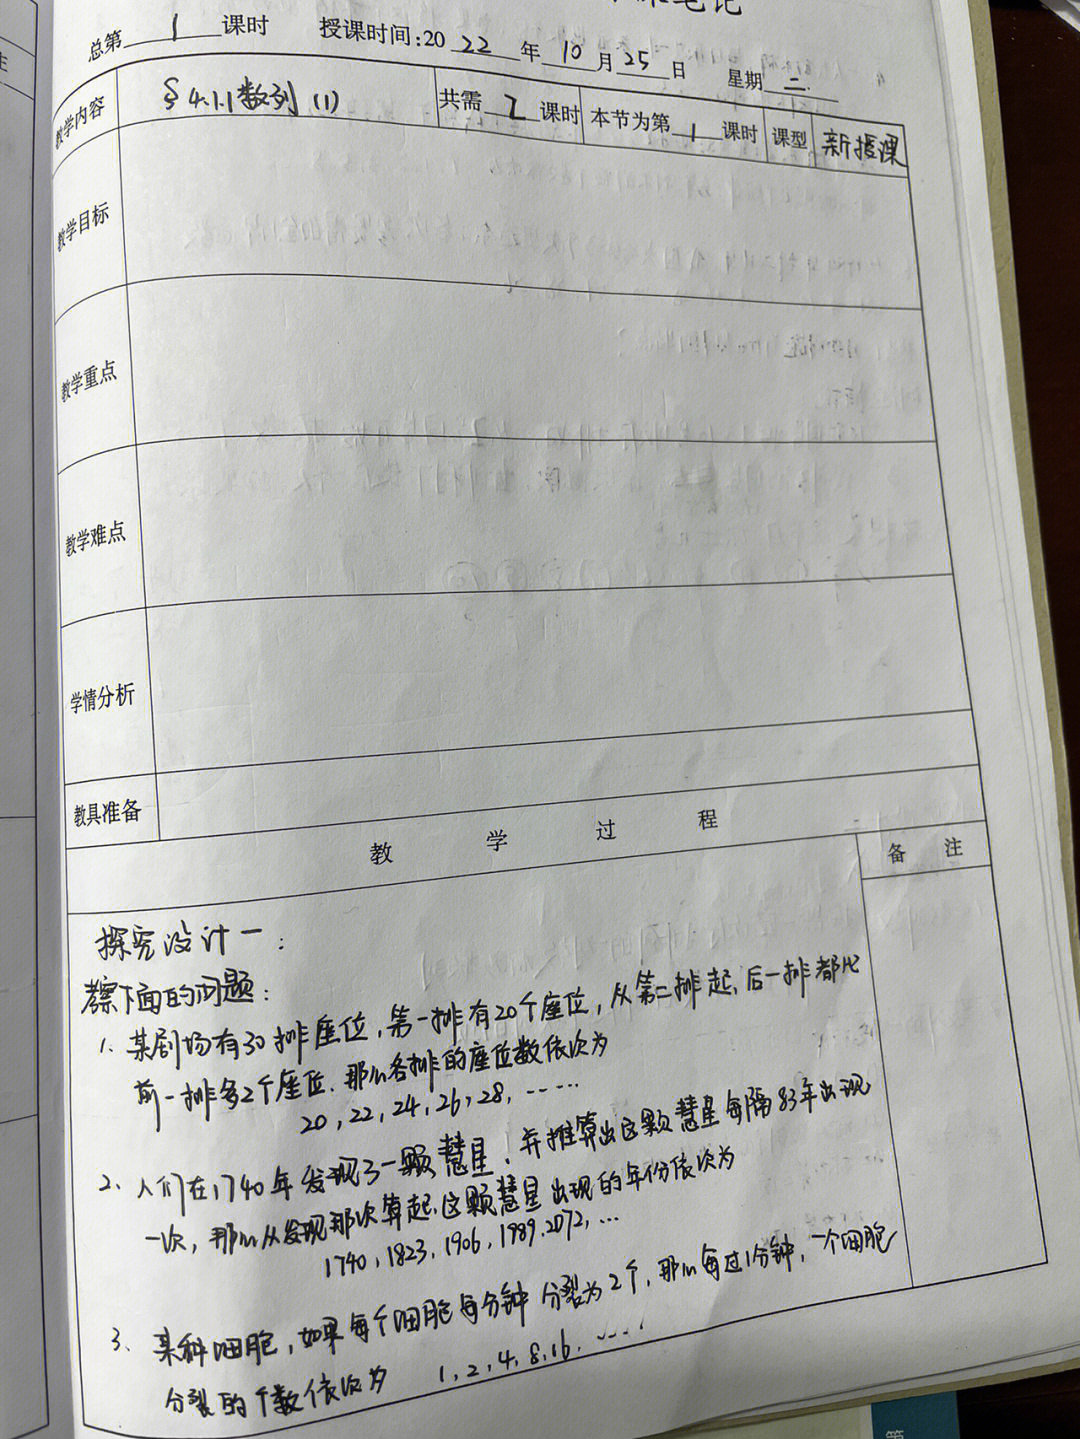 笔记
总第 1 课时 授课时间:2022年10月25日 星期二
教学内容 §4.1.1数列(1) 共需2课时 本节为第1课时 课型 新授课
教学目标
教学重点
教学难点
学情分析
教具准备
教 学 过 程
备 注
探究设计一:
察下面的问题:
1、某剧场有30排座位,第一排有20个座位,从第二排起,后一排都比
前一排多2个座位.那么各排的座位数依次为
20,22,24,26,28,……
2、人们在1740年发现了一颗慧星,并推算出这颗慧星每隔83年出现
一次,那么从发现那次算起,这颗慧星出现的年份依次为
1740,1823,1906,1989,2072,…
3、某种细胞,如果每个细胞每分钟分裂为2个,那么每过1分钟,一个细胞
分裂的个数依次为 1,2,4,8,16,……
第